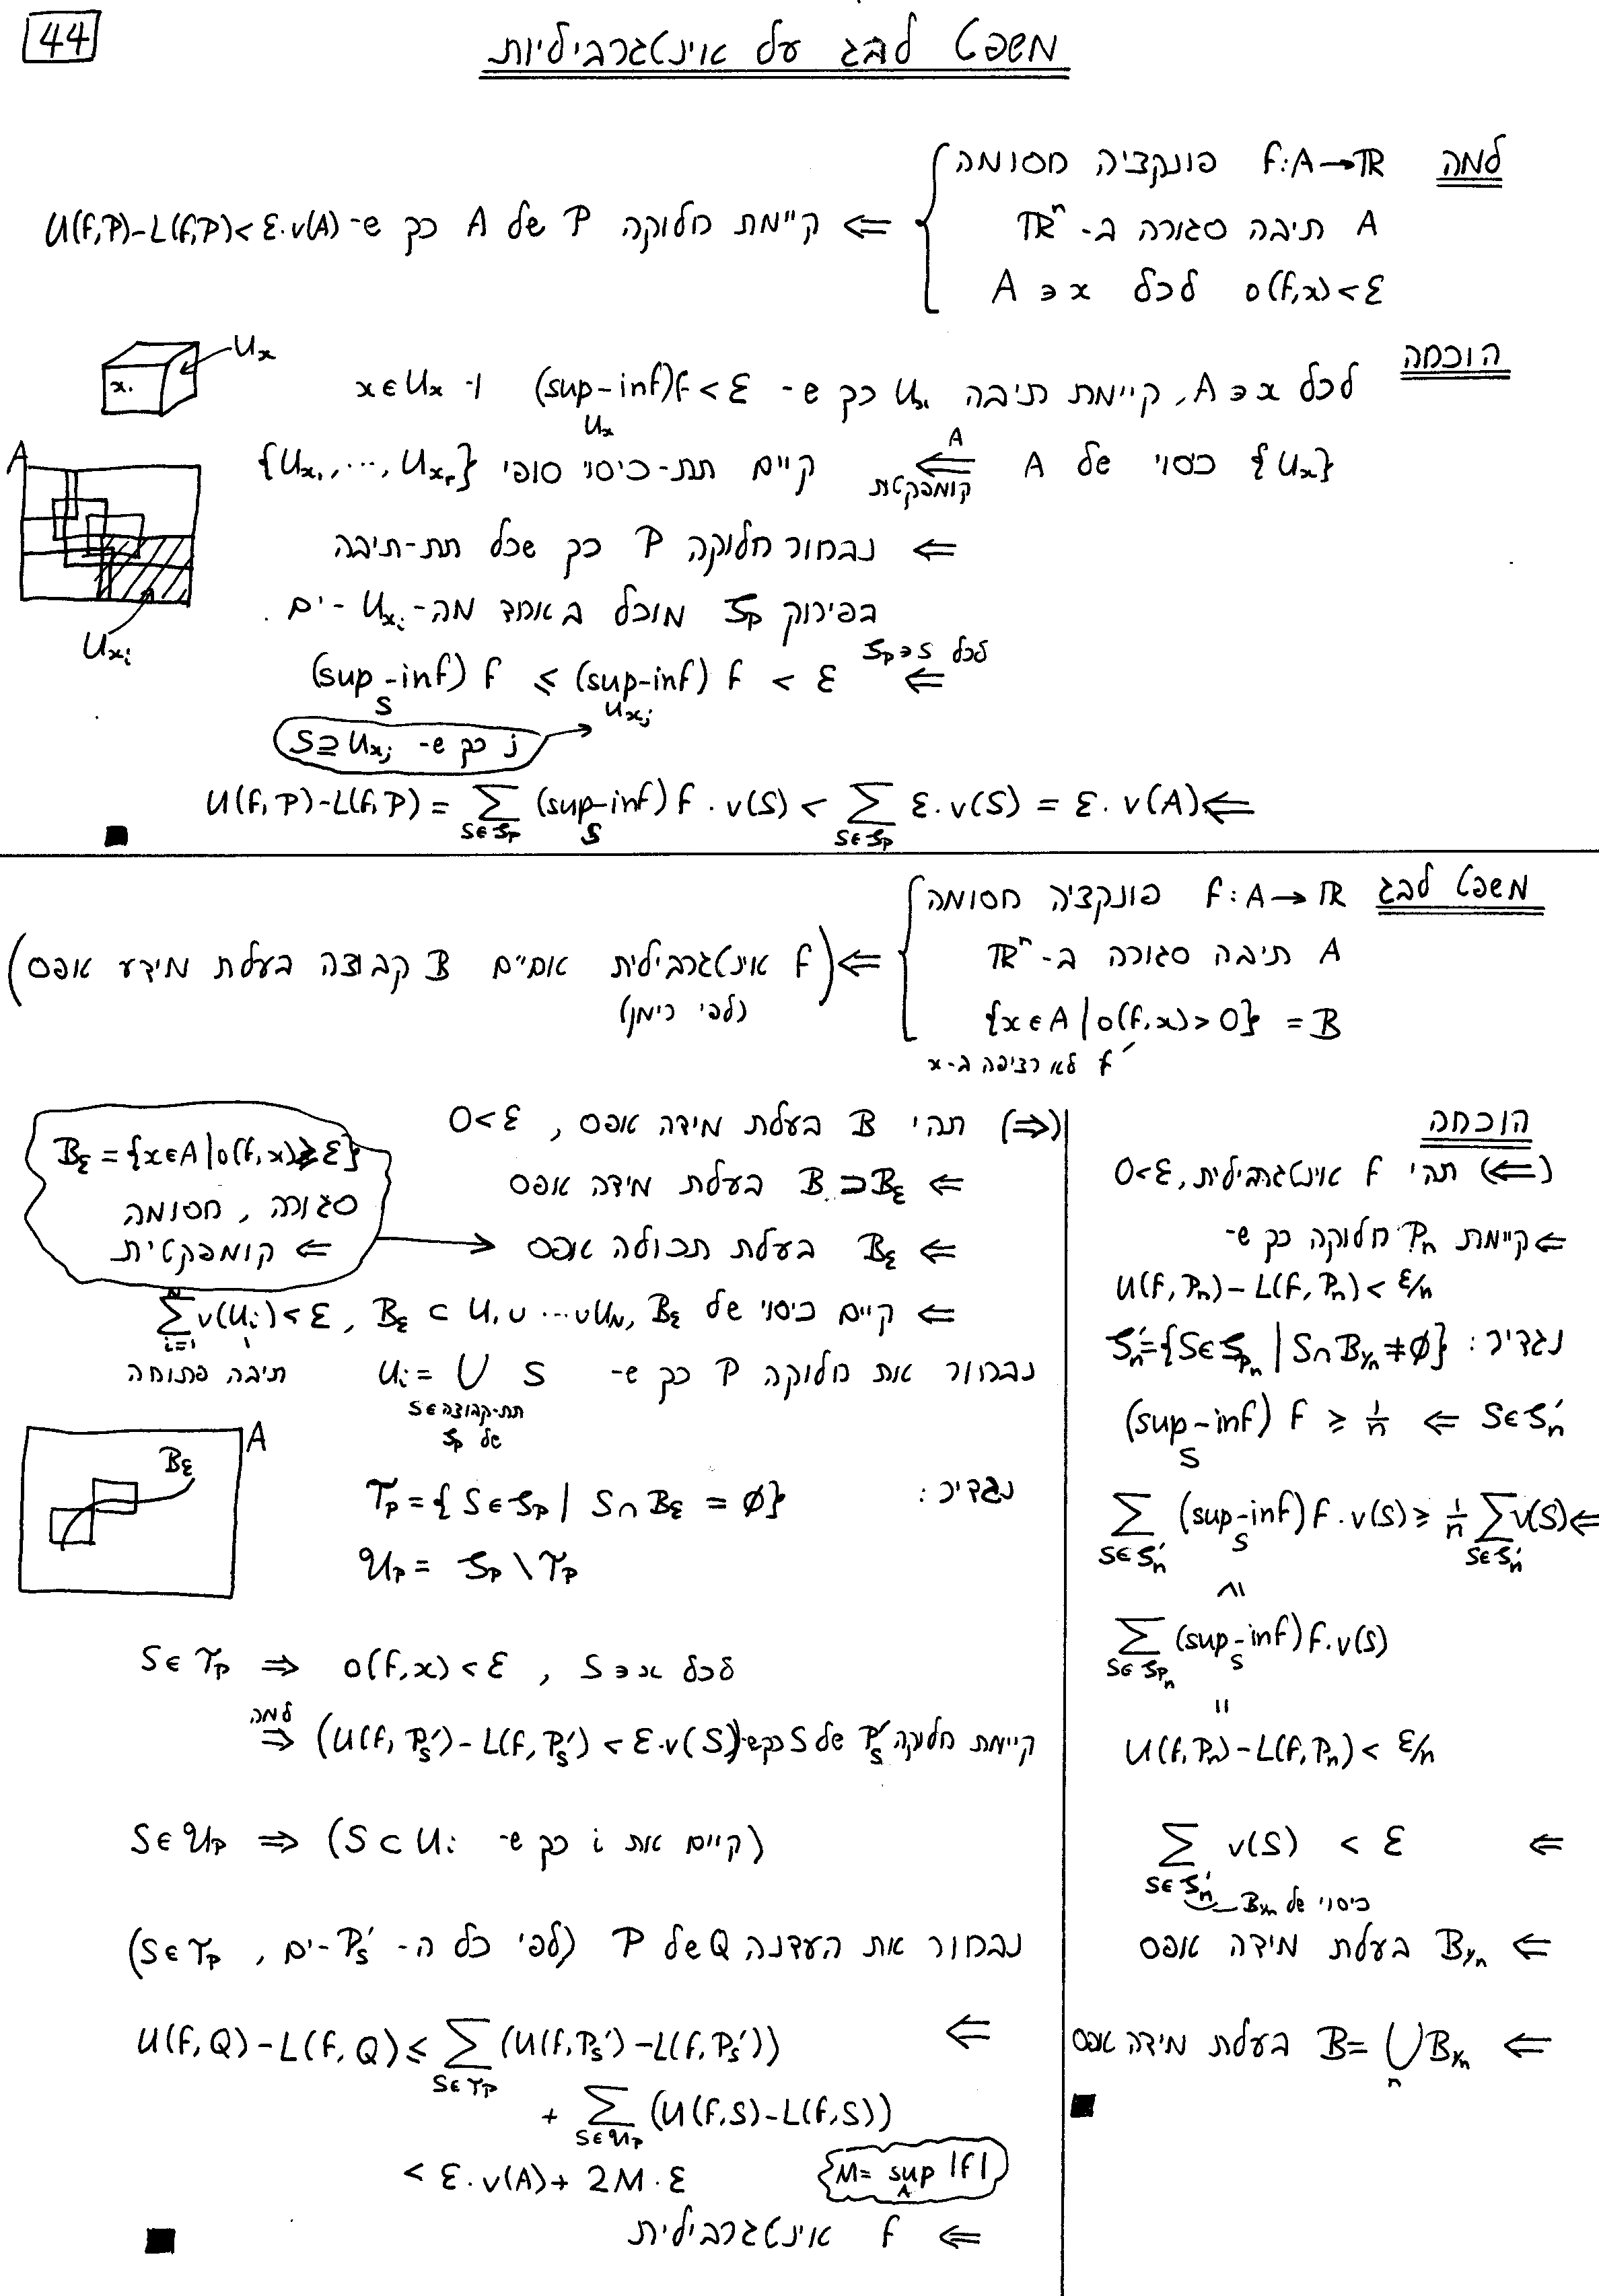 44
משפט לבג על אינטגרביליות
למה f:A→ℝ פונקציה חסומה
A תיבה סגורה ב-ℝⁿ
o(f,x)<ε לכל A∋x
⇐ קיימת חלוקה P של A כך ש- U(f,P)-L(f,P)<ε·v(A)
הוכחה
לכל A∋x, קיימת תיבה Uₓ כך ש- (sup-inf)f<ε ו- x∈Uₓ
Uₓ
Uₓ
x.
{Uₓ} כיסוי של A ⇐ קיים תת-כיסוי סופי {Uₓ₁,…,Uₓᵣ}
A
קומפקטית
A
⇐ נבחור חלוקה P כך שכל תת-תיבה
בפירוק 𝒮_P מוכל באחד מה-U_{x_i}-ים.
U_{x_i}
לכל 𝒮_P∋S
⇐ (sup-inf) f ≤ (sup-inf) f < ε
S U_{x_j}
j כך ש- S⊇U_{x_j}
U(f,P)-L(f,P) = ∑_{S∈𝒮_P} (sup-inf)_S f·v(S) < ∑_{S∈𝒮_P} ε·v(S) = ε·v(A) ⇐
■
משפט לבג f:A→ℝ פונקציה חסומה
A תיבה סגורה ב-ℝⁿ
{x∈A | o(f,x)>0} = B
f לא רציפה ב-x
⇐ (f אינטגרבילית אם״ם B קבוצה בעלת מידע אפס)
(לפי רימן)
הוכחה
(⇐) תהי f אינטגרבילית, 0<ε
⇐ קיימת Pₙ חלוקה כך ש-
U(f,Pₙ)-L(f,Pₙ)<ε/n
נגדיר: 𝒮ₙ'={S∈𝒮_{Pₙ} | S∩B_{1/n}≠∅}
(sup-inf)_S f ≥ 1/n ⇐ S∈𝒮ₙ'
∑_{S∈𝒮ₙ'} (sup-inf)_S f·v(S) ≥ 1/n ∑_{S∈𝒮ₙ'} v(S) ⇐
≤
∑_{S∈𝒮_{Pₙ}} (sup-inf)_S f·v(S)
=
U(f,Pₙ)-L(f,Pₙ)<ε/n
∑_{S∈𝒮ₙ'} v(S) < ε ⇐
כיסוי של B_{1/n}
⇐ B_{1/n} בעלת מידה אפס
⇐ B=⋃ₙ B_{1/n} בעלת מידה אפס
■
(⇒) תהי B בעלת מידה אפס, 0<ε
⇐ B⊃B_ε בעלת מידה אפס
⇐ B_ε בעלת תכולה אפס
B_ε={x∈A|o(f,x)≥ε}
סגורה, חסומה
⇐ קומפקטית
⇐ קיים כיסוי של B_ε, B_ε ⊂ U₁∪⋯∪U_N, ∑_{i=1}^N v(U_i)<ε
תיבה פתוחה
נבחור את חלוקה P כך ש- U_i = ⋃ S
S∈תת-קבוצה
של 𝒮_P
A
B_ε
נגדיר: 𝒯_P={S∈𝒮_P | S∩B_ε=∅}
𝒰_P = 𝒮_P\𝒯_P
S∈𝒯_P ⇒ o(f,x)<ε, לכל S∋x
למה
⇒ (U(f,P_S')-L(f,P_S')<ε·v(S) קיימת חלוקה P_S' של S כך ש-)
S∈𝒰_P ⇒ (S⊂U_i קיים את i כך ש-)
נבחור את העדנה Q של P (לפי כל ה-P_S'-ים, S∈𝒯_P)
⇐ U(f,Q)-L(f,Q) ≤ ∑_{S∈𝒯_P} (U(f,P_S')-L(f,P_S'))
+ ∑_{S∈𝒰_P} (U(f,S)-L(f,S))
< ε·v(A)+2M·ε
M= sup_A |f|
⇐ f אינטגרבילית
■